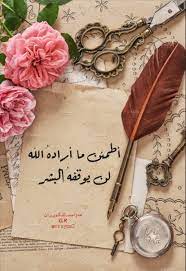 أطمئن ما أراده الله
لن يوقفه البشر